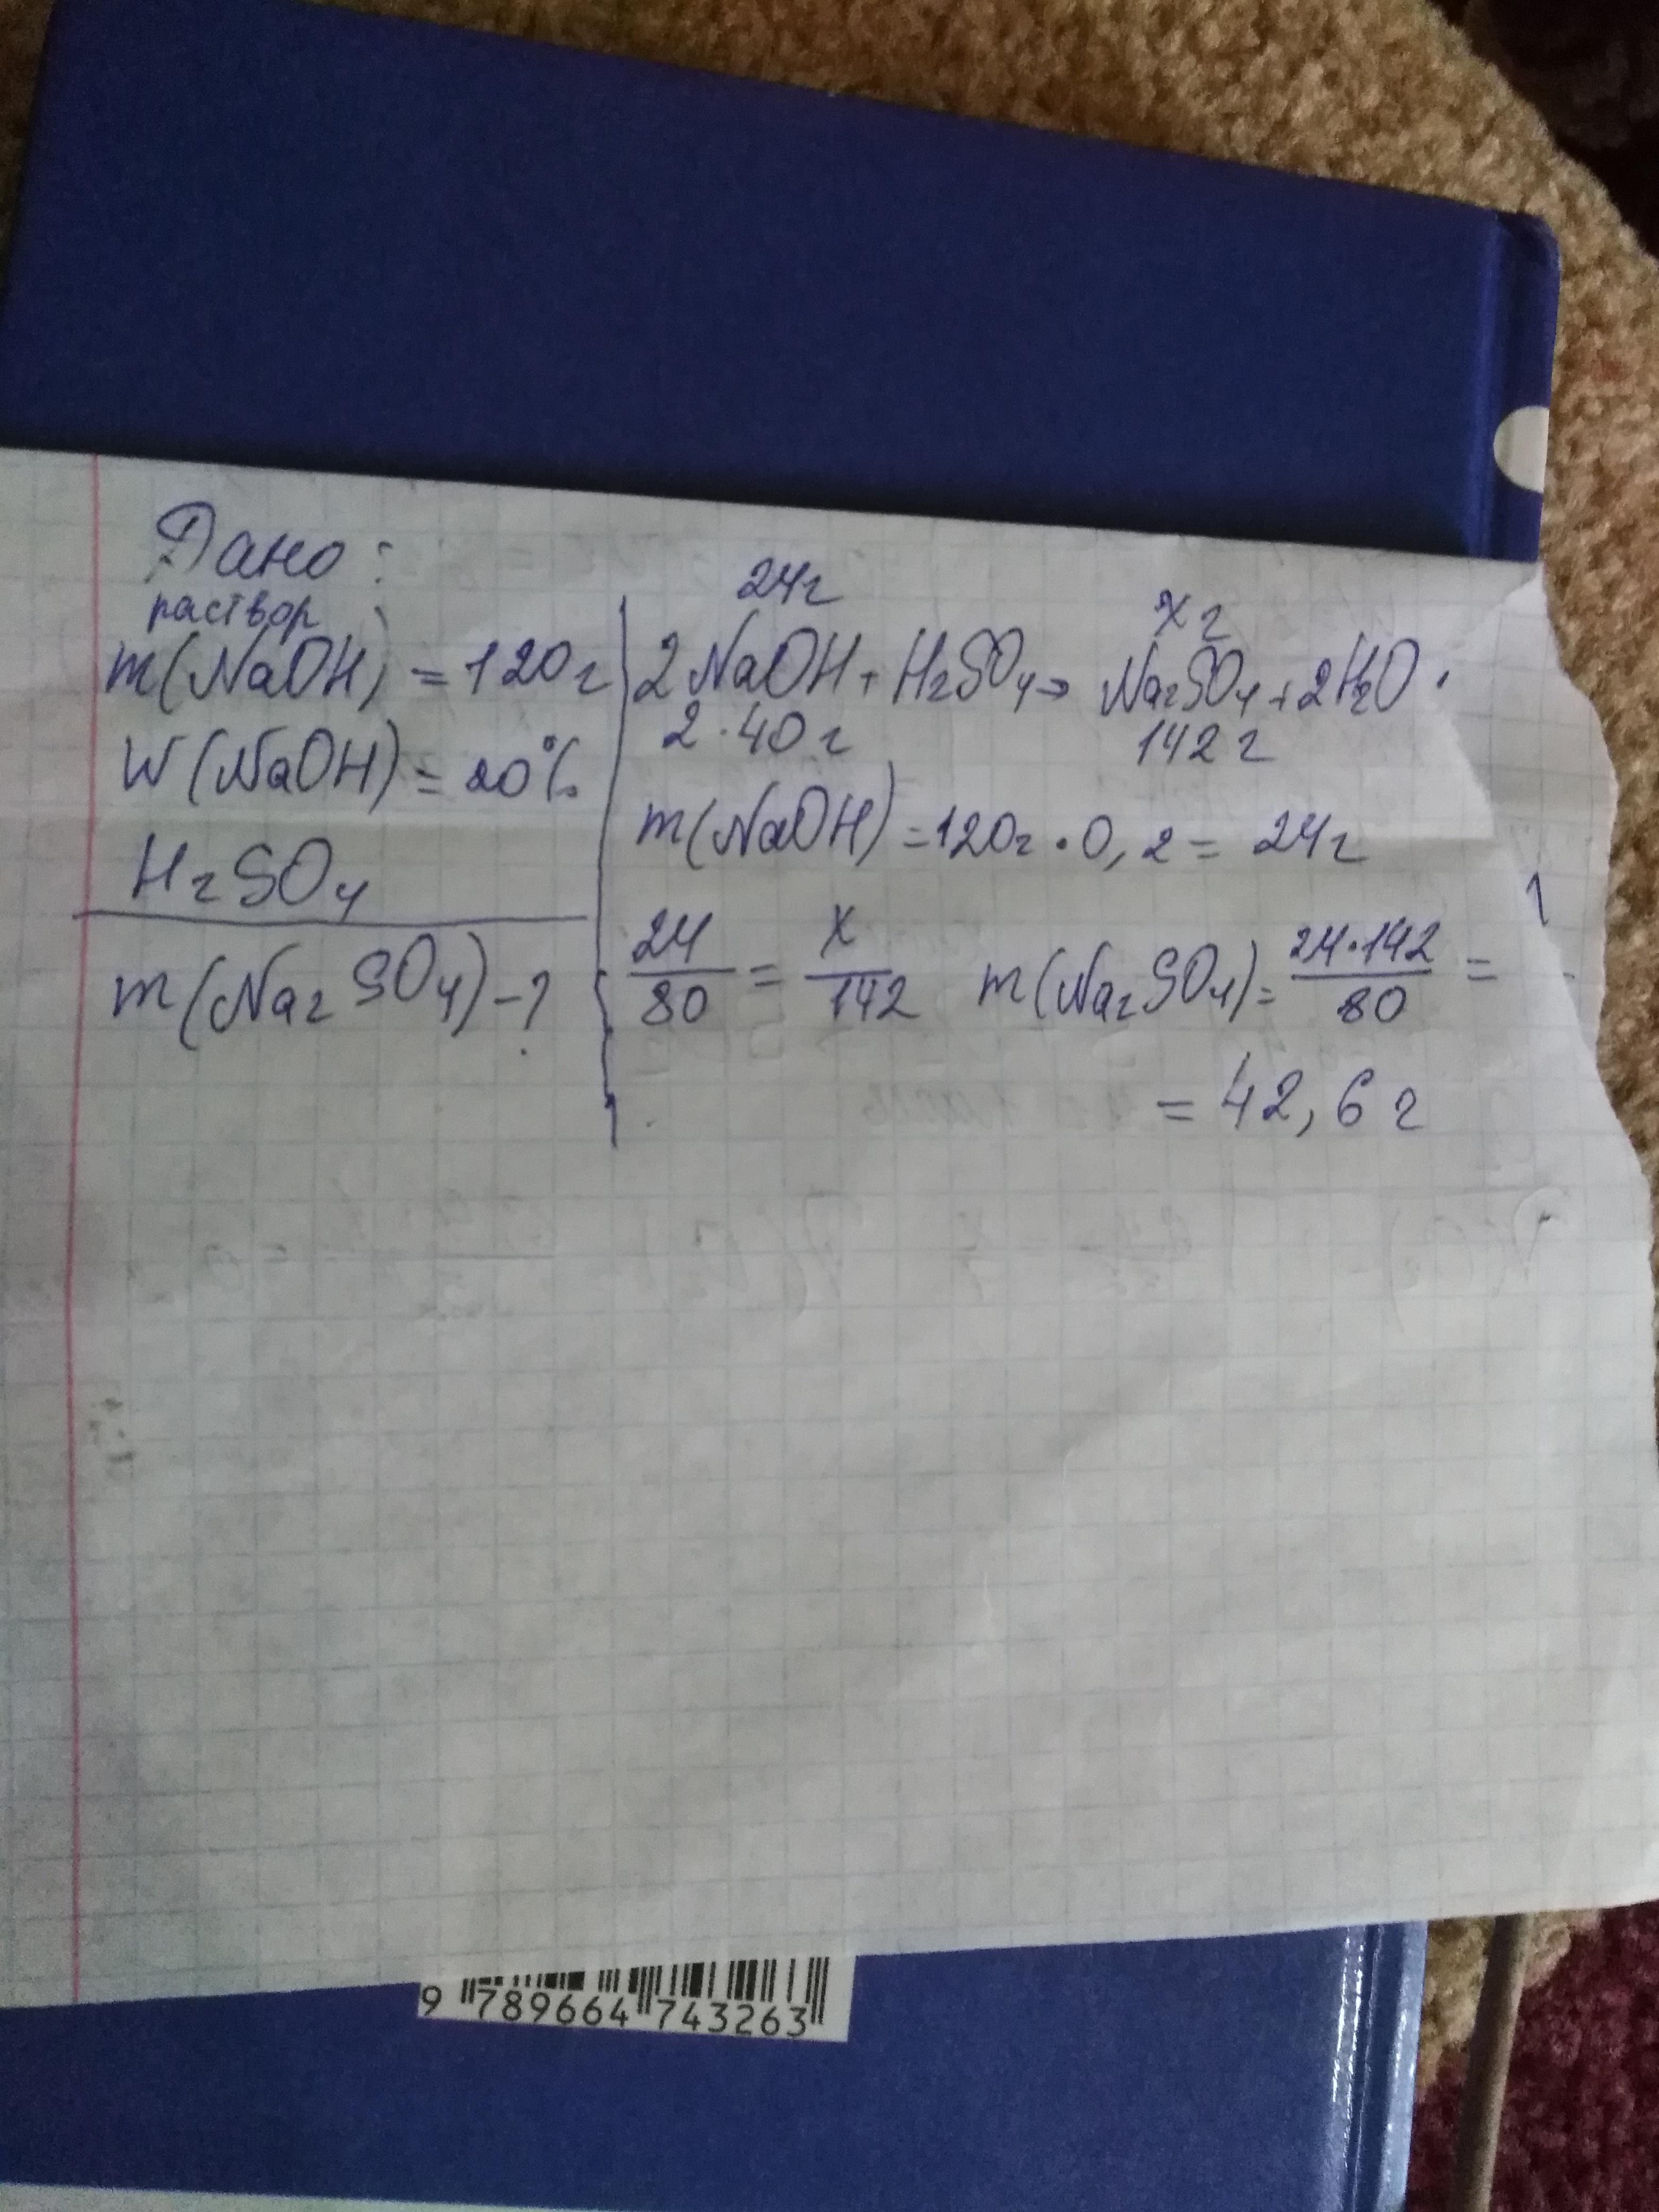 Дано:
раствор
m(NaOH) = 120г
W(NaOH) = 20%
H₂SO₄
m(Na₂SO₄) - ?
24г x г
2NaOH + H₂SO₄ → Na₂SO₄ + 2H₂O.
2·40г 142г
m(NaOH) = 120г · 0,2 = 24г
24/80 = x/142 m(Na₂SO₄) = 24·142/80 =
= 42,6 г
9 789664 743263